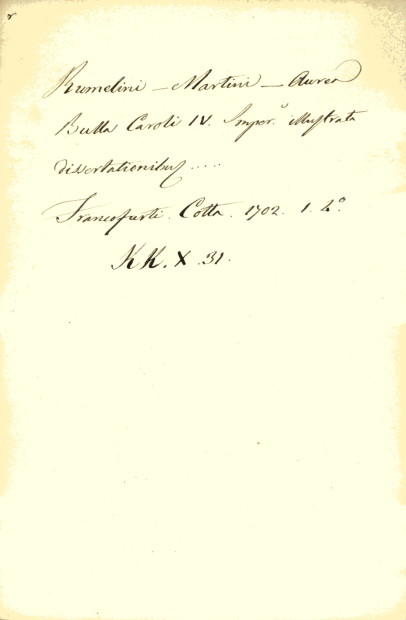 Rumelini - Martini - Aurea
Bulla Caroli IV. Imper. illustrata
dissertationibus ....
Francofurti. Cotta. 1702. 1. 4°.
KK. X. 31.